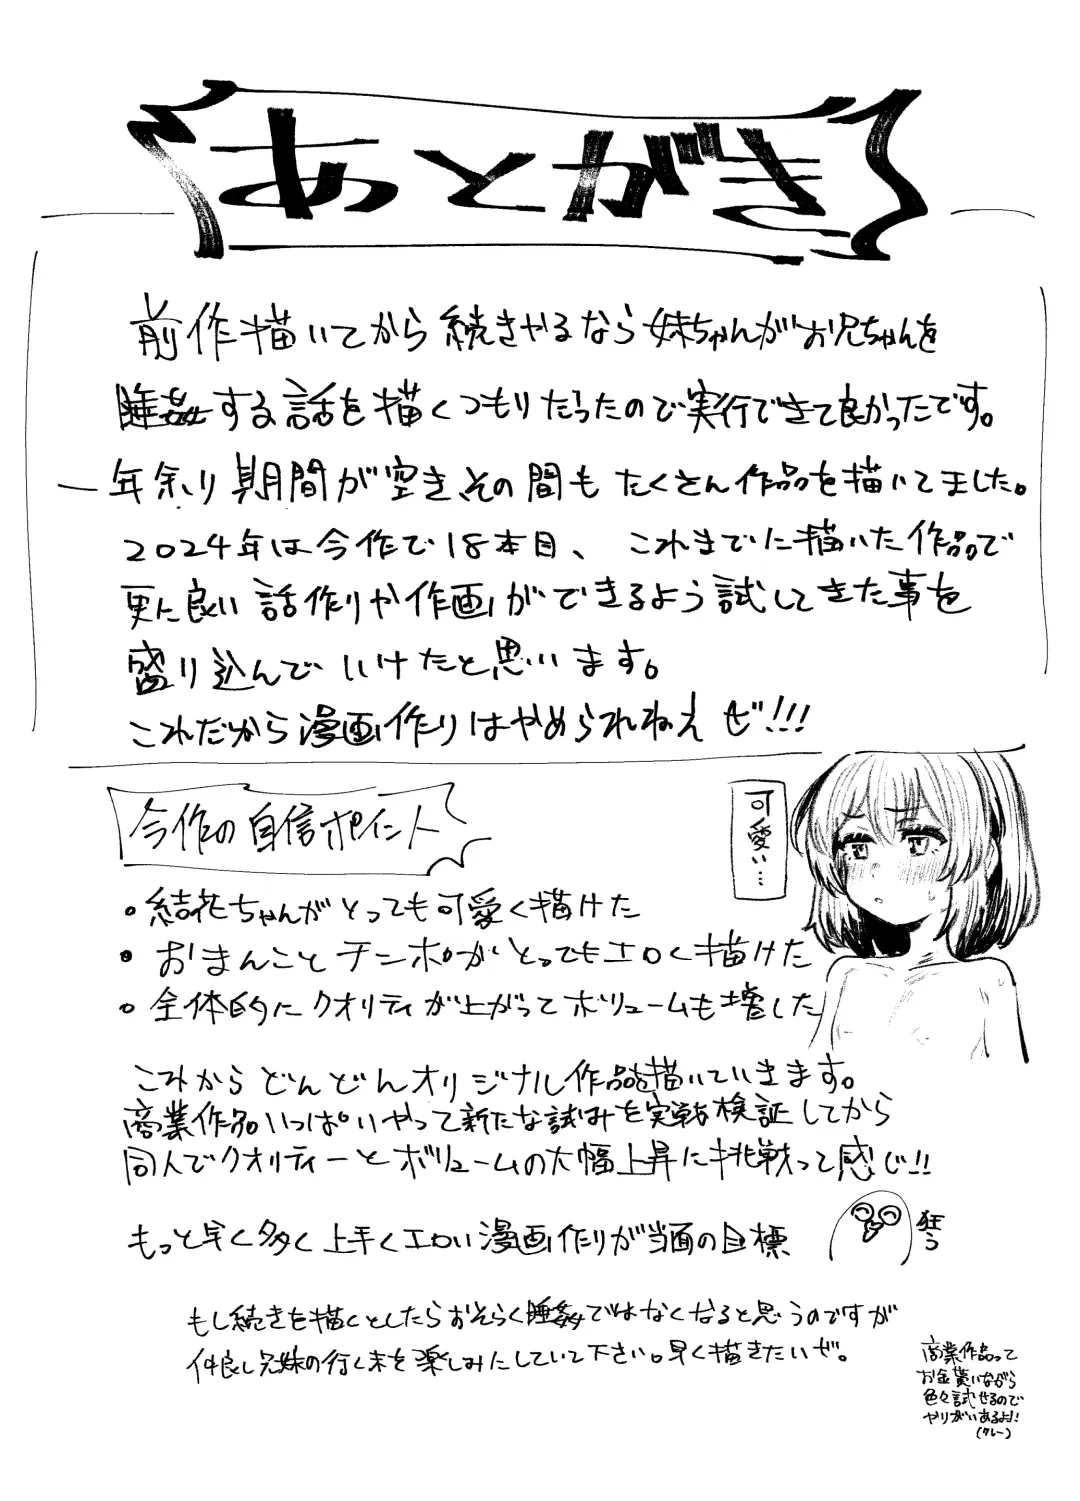 あとがき
前作描いてから続きやるなら妹ちゃんがお兄ちゃんを
睡姦する話を描くつもりだったので実行できて良かったです。
一年余り期間が空きその間もたくさん作品を描いてました。
2024年は今作で18本目、これまでに描いた作品で
更に良い話作りや作画ができるよう試してきた事を
盛り込んでいけたと思います。
これだから漫画作りはやめられねえぜ!!!
今作の自信ポイント
可愛い…
・結花ちゃんがとっても可愛く描けた
・おまんことチンポがとってもエロく描けた
・全体的にクオリティが上がってボリュームも増した
これからどんどんオリジナル作品を描いていきます。
商業作品いっぱいやって新たな試みを実戦検証してから
同人でクオリティーとボリュームの大幅上昇に挑戦って感じ!!
もっと早く多く上手くエロい漫画作りが当面の目標
狂う
もし続きを描くとしたらおそらく睡姦ではなくなると思うのですが
仲良し兄妹の行く末を楽しみにしていて下さい。早く描きたいぜ。
商業作品って
お金貰いながら
色々試せるので
やりがいあるよ!